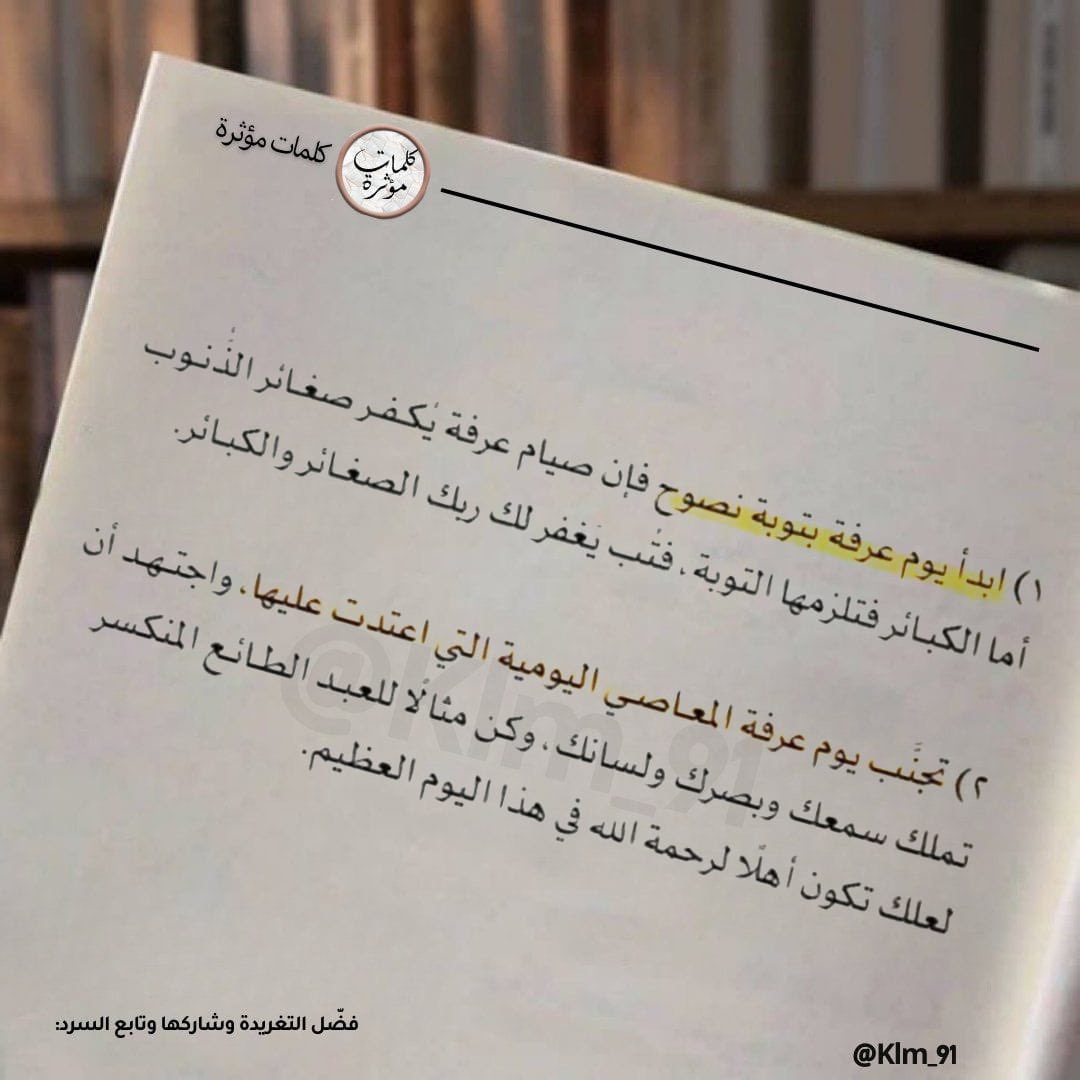 كلمات مؤثرة
كلمات
مؤثرة
١) ابدأ يوم عرفة بتوبة نصوح فإن صيام عرفة يُكفر صغائر الذُنوب
أما الكبائر فتلزمها التوبة، فتُب يَغفر لك ربك الصغائر والكبائر.
٢) تجنَّب يوم عرفة المعاصي اليومية التي اعتدت عليها، واجتهد أن
تملك سمعك وبصرك ولسانك، وكن مثالًا للعبد الطائع المنكسر
لعلك تكون أهلًا لرحمة الله في هذا اليوم العظيم.
@Klm_91
فضّل التغريدة وشاركها وتابع السرد:
@Klm_91